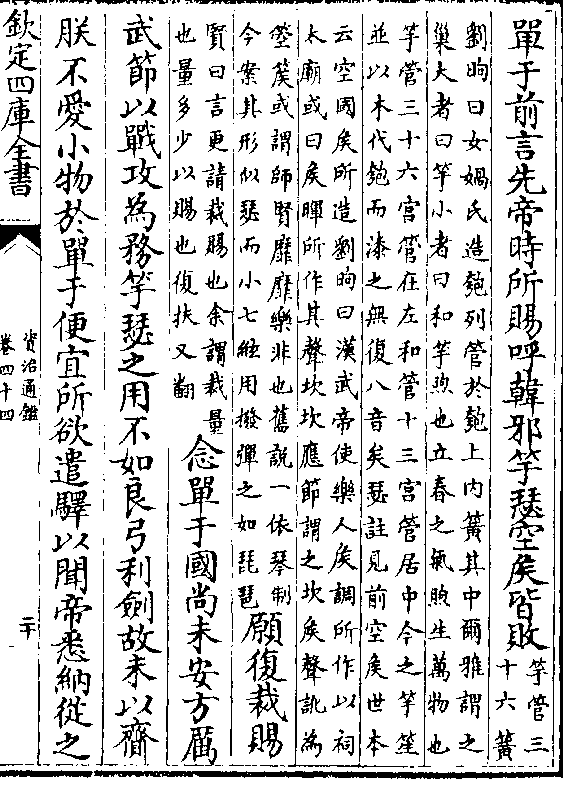 單于前言先帝時所賜呼韓邪竽瑟空矦皆敗竽管三
十六簧
劉昫曰女媧氏造匏列管於匏上内簧其中爾雅謂之
巢大者曰竽小者曰和竽煦也立春之氣煦生萬物也
竽管三十六宫管在左和管十三宫管居中今之竽笙
並以木代匏而漆之無復八音矣瑟註見前空矦世本
云空國矦所造劉昫曰漢武帝使樂人矦調所作以祠
太廟或曰矦暉所作其聲坎坎應節謂之坎矦聲訛為
箜篌或謂師賢靡靡樂非也舊説一依琴制
今案其形似瑟而小七絃用撥彈之如琵琶願復裁賜
賢曰言更請裁賜也余謂裁量
也量多少以賜也復扶又翻念單于國尚未安方厲
武節以戰攻為務竽瑟之用不如良弓利劍故未以齎
朕不愛小物於單于便宜所欲遣驛以聞帝悉納從之
欽定四庫全書
資治通鑑
卷四十四
二十